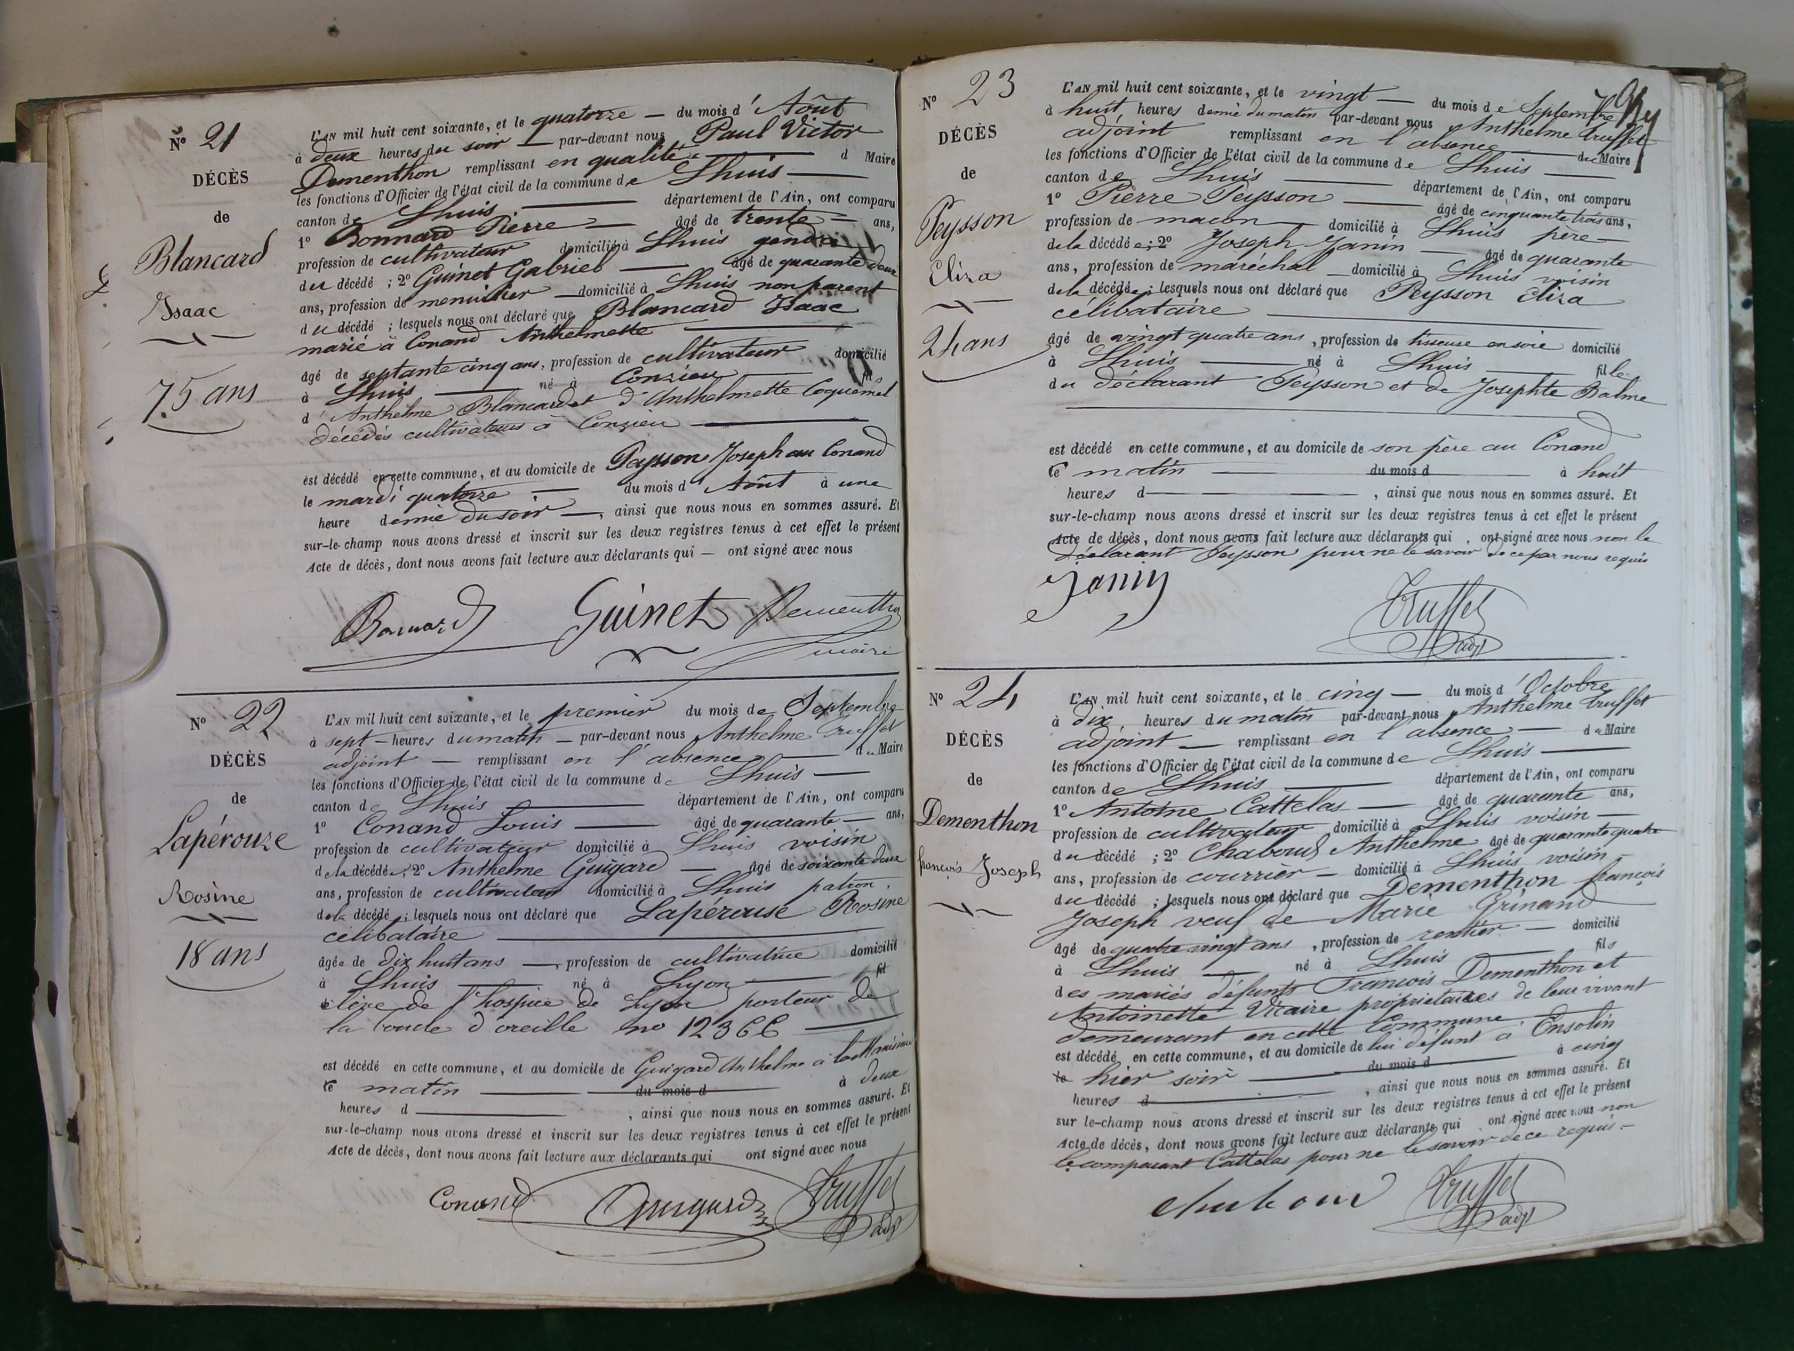 N° 21
DÉCÈS
de
Blancard
Isaac
75 ans
L'AN mil huit cent soixante, et le quatorze — du mois d'Août
à deux heures du soir — par-devant nous Paul Victor
Dementhon remplissant en qualité — d Maire
les fonctions d'Officier de l'état civil de la commune de Lhuis —
canton de Lhuis — département de l'Ain, ont comparu
1° Bonnard Pierre — âgé de trente — ans,
profession de cultivateur domicilié à Lhuis gendre
du décédé ; 2° Guinet Gabriel — âgé de quarante deux
ans, profession de menuisier — domicilié à Lhuis non parent
du décédé ; lesquels nous ont déclaré que Blancard Isaac
marié à Conand Anthelmette —
âgé de septante cinq ans, profession de cultivateur domicilié
à Lhuis — né à Conzieu — fils
d'Anthelme Blancard et d'Anthelmette Coquemel
décédés cultivateurs à Conzieu —
est décédé en cette commune, et au domicile de Peysson Joseph au Conand
le mardi quatorze — du mois d'Août à une
heure demie du soir —, ainsi que nous nous en sommes assuré. Et
sur-le-champ nous avons dressé et inscrit sur les deux registres tenus à cet effet le présent
Acte de décès, dont nous avons fait lecture aux déclarants qui — ont signé avec nous
Bonnard Guinet Dementhon
maire
N° 22
DÉCÈS
de
Lapérouze
Rosine
18 ans
L'AN mil huit cent soixante, et le premier du mois de Septembre
à sept — heures du matin — par-devant nous Anthelme Truffet
adjoint — remplissant en l'absence — du Maire
les fonctions d'Officier de l'état civil de la commune de Lhuis —
canton de Lhuis — département de l'Ain, ont comparu
1° Conand Louis — âgé de quarante — ans,
profession de cultivateur domicilié à Lhuis voisin
de la décédée ; 2° Anthelme Guigard — âgé de soixante deux
ans, profession de cultivateur domicilié à Lhuis patron,
de la décédé ; lesquels nous ont déclaré que Lapérouse Rosine
célibataire —
âgée de dix huit ans —, profession de cultivatrice domicilié
à Lhuis — né à Lyon — fil
élève de l'hospice de Lyon porteur de
la boucle d'oreille no 12366 —
est décédé en cette commune, et au domicile de Guigard Anthelme à
le matin — du mois d à deux
heures d —, ainsi que nous nous en sommes assuré. Et
sur-le-champ nous avons dressé et inscrit sur les deux registres tenus à cet effet le présent
Acte de décès, dont nous avons fait lecture aux déclarants qui ont signé avec nous
Conand Guigard Truffet
adjt
N° 23
DÉCÈS
de
Peysson
Eliza
24 ans
L'AN mil huit cent soixante, et le vingt — du mois de Septembre
à huit heures demie du matin par-devant nous Anthelme Truffet
adjoint remplissant en l'absence — du Maire
les fonctions d'Officier de l'état civil de la commune de Lhuis —
canton de Lhuis — département de l'Ain, ont comparu
1° Pierre Peysson — âgé de cinquante trois ans,
profession de maçon — domicilié à Lhuis père —
de la décédée ; 2° Joseph Janin — âgé de quarante
ans, profession de maréchal — domicilié à Lhuis voisin
de la décédée ; lesquels nous ont déclaré que Peysson Eliza
célibataire —
âgé de vingt quatre ans, profession de tisseuse en soie domicilié
à Lhuis — né à Lhuis — fille
du déclarant Peysson et de Josephte Balme
est décédé en cette commune, et au domicile de son père au Conand
le matin — du mois d — à huit
heures d —, ainsi que nous nous en sommes assuré. Et
sur-le-champ nous avons dressé et inscrit sur les deux registres tenus à cet effet le présent
Acte de décès, dont nous avons fait lecture aux déclarants qui, ont signé avec nous non le
déclarant Peysson pour ne le savoir de ce par nous requis
Janin Truffet
adjt
N° 24
DÉCÈS
de
Dementhon
françois Joseph
L'AN mil huit cent soixante, et le cinq — du mois d'Octobre
à dix, heures du matin par-devant nous Anthelme Truffet
adjoint — remplissant en l'absence — du Maire
les fonctions d'Officier de l'état civil de la commune de Lhuis —
canton de Lhuis — département de l'Ain, ont comparu
1° Antoine Cattelas — âgé de quarante ans,
profession de cultivateur domicilié à Lhuis voisin —
du décédé ; 2° Chaboud Anthelme âgé de quarante quatre
ans, profession de courrier — domicilié à Lhuis voisin —
du décédé ; lesquels nous ont déclaré que Dementhon françois
Joseph veuf de Marie Grinand
âgé de quatre vingt ans, profession de rentier — domicilié
à Lhuis — né à Lhuis — fils
des mariés défunts François Dementhon et
Antoinette Vicaire propriétaires de leur vivant
demeurant en cette Commune —
est décédé en cette commune, et au domicile de lui défunt à Ensolin
le hier soir — du mois d — à cinq
heures d —, ainsi que nous nous en sommes assuré. Et
sur le-champ nous avons dressé et inscrit sur les deux registres tenus à cet effet le présent
Acte de décès, dont nous avons fait lecture aux déclarants qui ont signé avec nous non
le comparant Cattelas pour ne le savoir de ce requis —
Chaboud Truffet
adjt